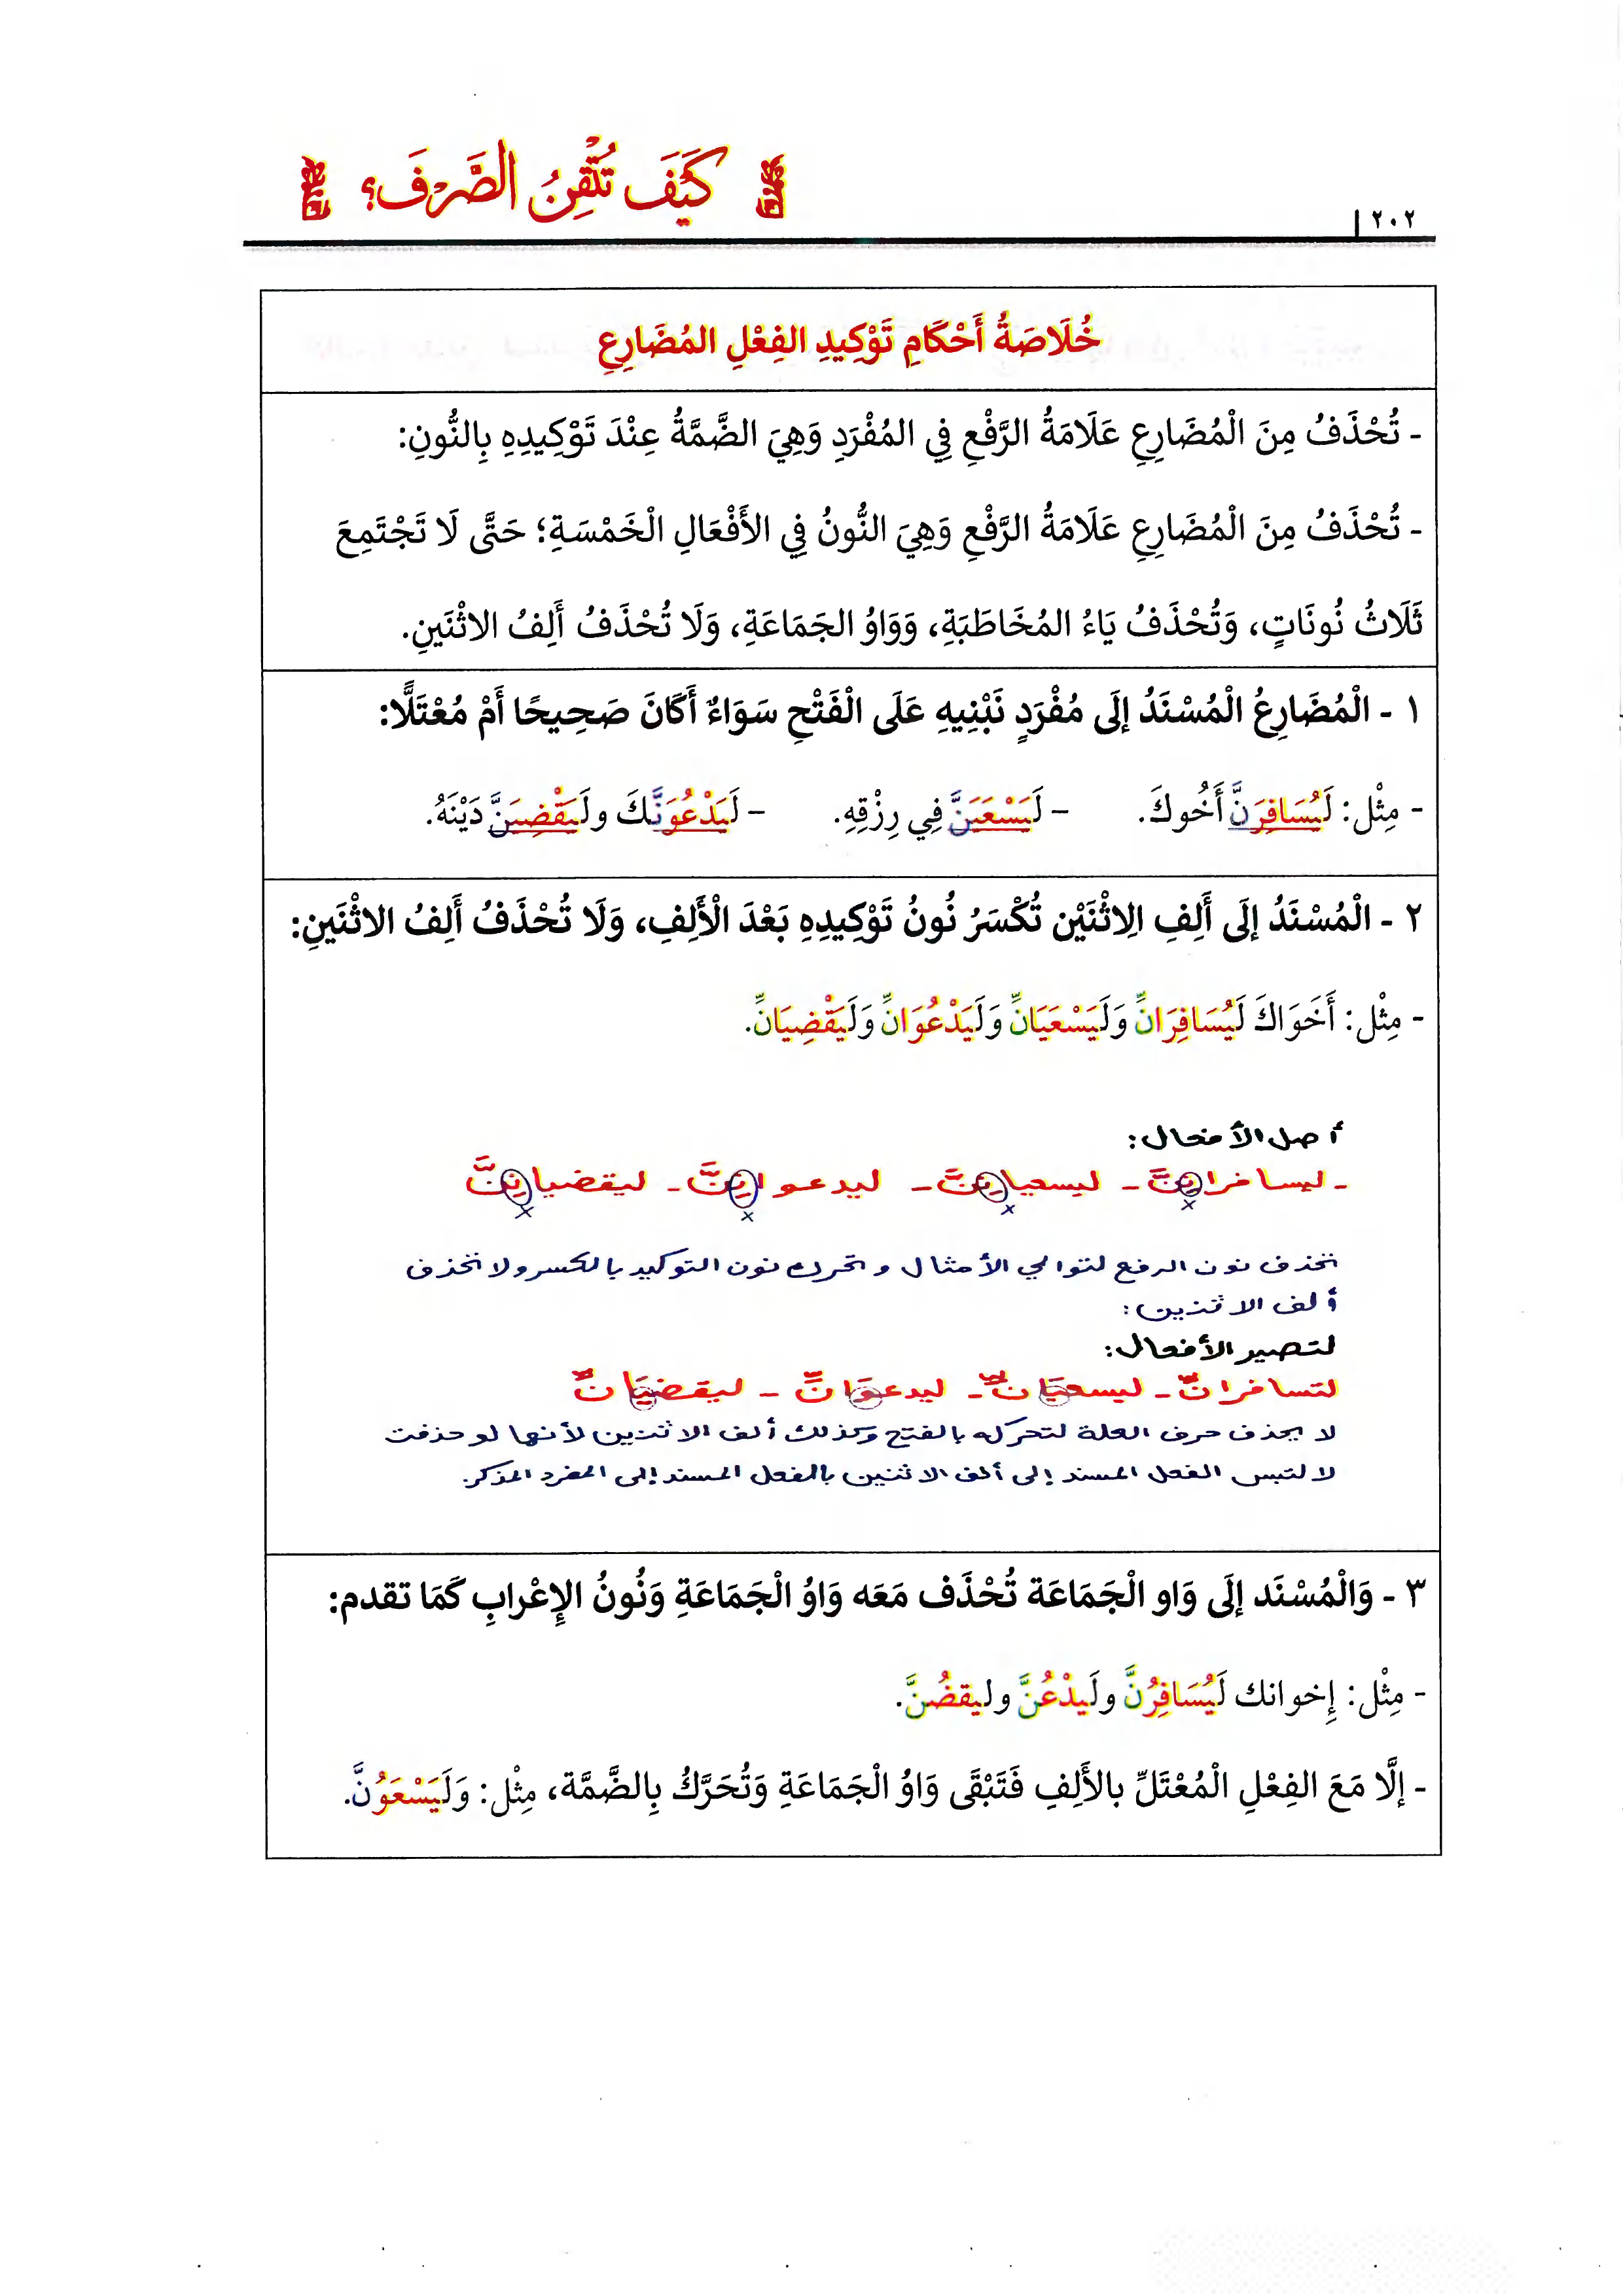 كَيْفَ تُتْقِنُ الصَّرْفَ؟
٢٠٢
خُلَاصَةُ أَحْكَامِ تَوْكِيدِ الفِعْلِ المُضَارِعِ
- تُحْذَفُ مِنَ الْمُضَارِعِ عَلَامَةُ الرَّفْعِ فِي المُفْرَدِ وَهِيَ الضَّمَّةُ عِنْدَ تَوْكِيدِهِ بِالنُّونِ:
- تُحْذَفُ مِنَ الْمُضَارِعِ عَلَامَةُ الرَّفْعِ وَهِيَ النُّونُ فِي الأَفْعَالِ الْخَمْسَةِ؛ حَتَّى لَا تَجْتَمِعَ
ثَلَاثُ نُونَاتٍ، وَتُحْذَفُ يَاءُ المُخَاطَبَةِ، وَوَاوُ الجَمَاعَةِ، وَلَا تُحْذَفُ أَلِفُ الاثْنَينِ.
١ - الْمُضَارِعُ الْمُسْنَدُ إلَى مُفْرَدٍ نَبْنِيهِ عَلَى الْفَتْحِ سَوَاءٌ أَكَانَ صَحِيحًا أَمْ مُعْتَلًّا:
- مِثْل: لَيُسَافِرَنَّ أَخُوكَ. - لَيَسْعَيَنَّ فِي رِزْقِهِ. - لَيَدْعُوَنَّكَ ولَيَقْضِيَنَّ دَيْنَهُ.
٢ - الْمُسْنَدُ إلَى أَلِفِ الِاثْنَيْن تُكْسَرُ نُونُ تَوْكِيدِهِ بَعْدَ الْأَلِفِ، وَلَا تُحْذَفُ أَلِفُ الاثْنَينِ:
- مِثْل: أَخَوَاكَ لَيُسَافِرَانِّ وَلَيَسْعَيَانِّ وَلَيَدْعُوَانِّ وَلَيَقْضِيَانِّ.
أصل الأفعال:
- ليسافراننَّ - ليسعياننَّ - ليدعواننَّ - ليقضياننَّ
تحذف نون الرفع لتوالي الأمثال و تحرك نون التوكيد بالكسر ولا تحذف
ألف الاثنين:
لتصير الأفعال:
لتسافرانِّ - ليسعيَانِّ - ليدعوَانِّ - ليقضيَانِّ
لا يحذف حرف العلة لتحركه بالفتح وكذلك ألف الاثنين لأنها لو حذفت
لالتبس الفعل المسند إلى ألف الاثنين بالفعل المسند إلى المفرد المذكر.
٣ - وَالْمُسْنَد إلَى وَاو الْجَمَاعَة تُحْذَف مَعَه وَاوُ الْجَمَاعَةِ وَنُونُ الإعْرابِ كَمَا تقدم:
- مِثْل: إخوانك لَيُسَافِرُنَّ ولَيدْعُنَّ وليقضُنَّ.
- إلَّا مَعَ الفِعْلِ الْمُعْتَلِّ بالأَلِفِ فَتَبْقَى وَاوُ الْجَمَاعَةِ وَتُحَرَّكُ بِالضَّمَّة، مِثْل: وَلَيَسْعَوُنَّ.